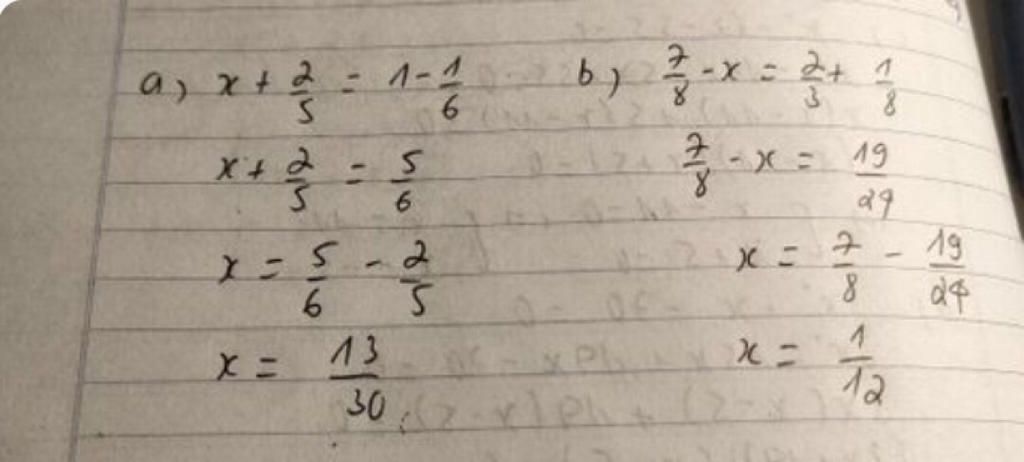 a) x + 2/5 = 1 - 1/6
x + 2/5 = 5/6
x = 5/6 - 2/5
x = 13/30
b) 7/8 - x = 2/3 + 1/8
7/8 - x = 19/24
x = 7/8 - 19/24
x = 1/12